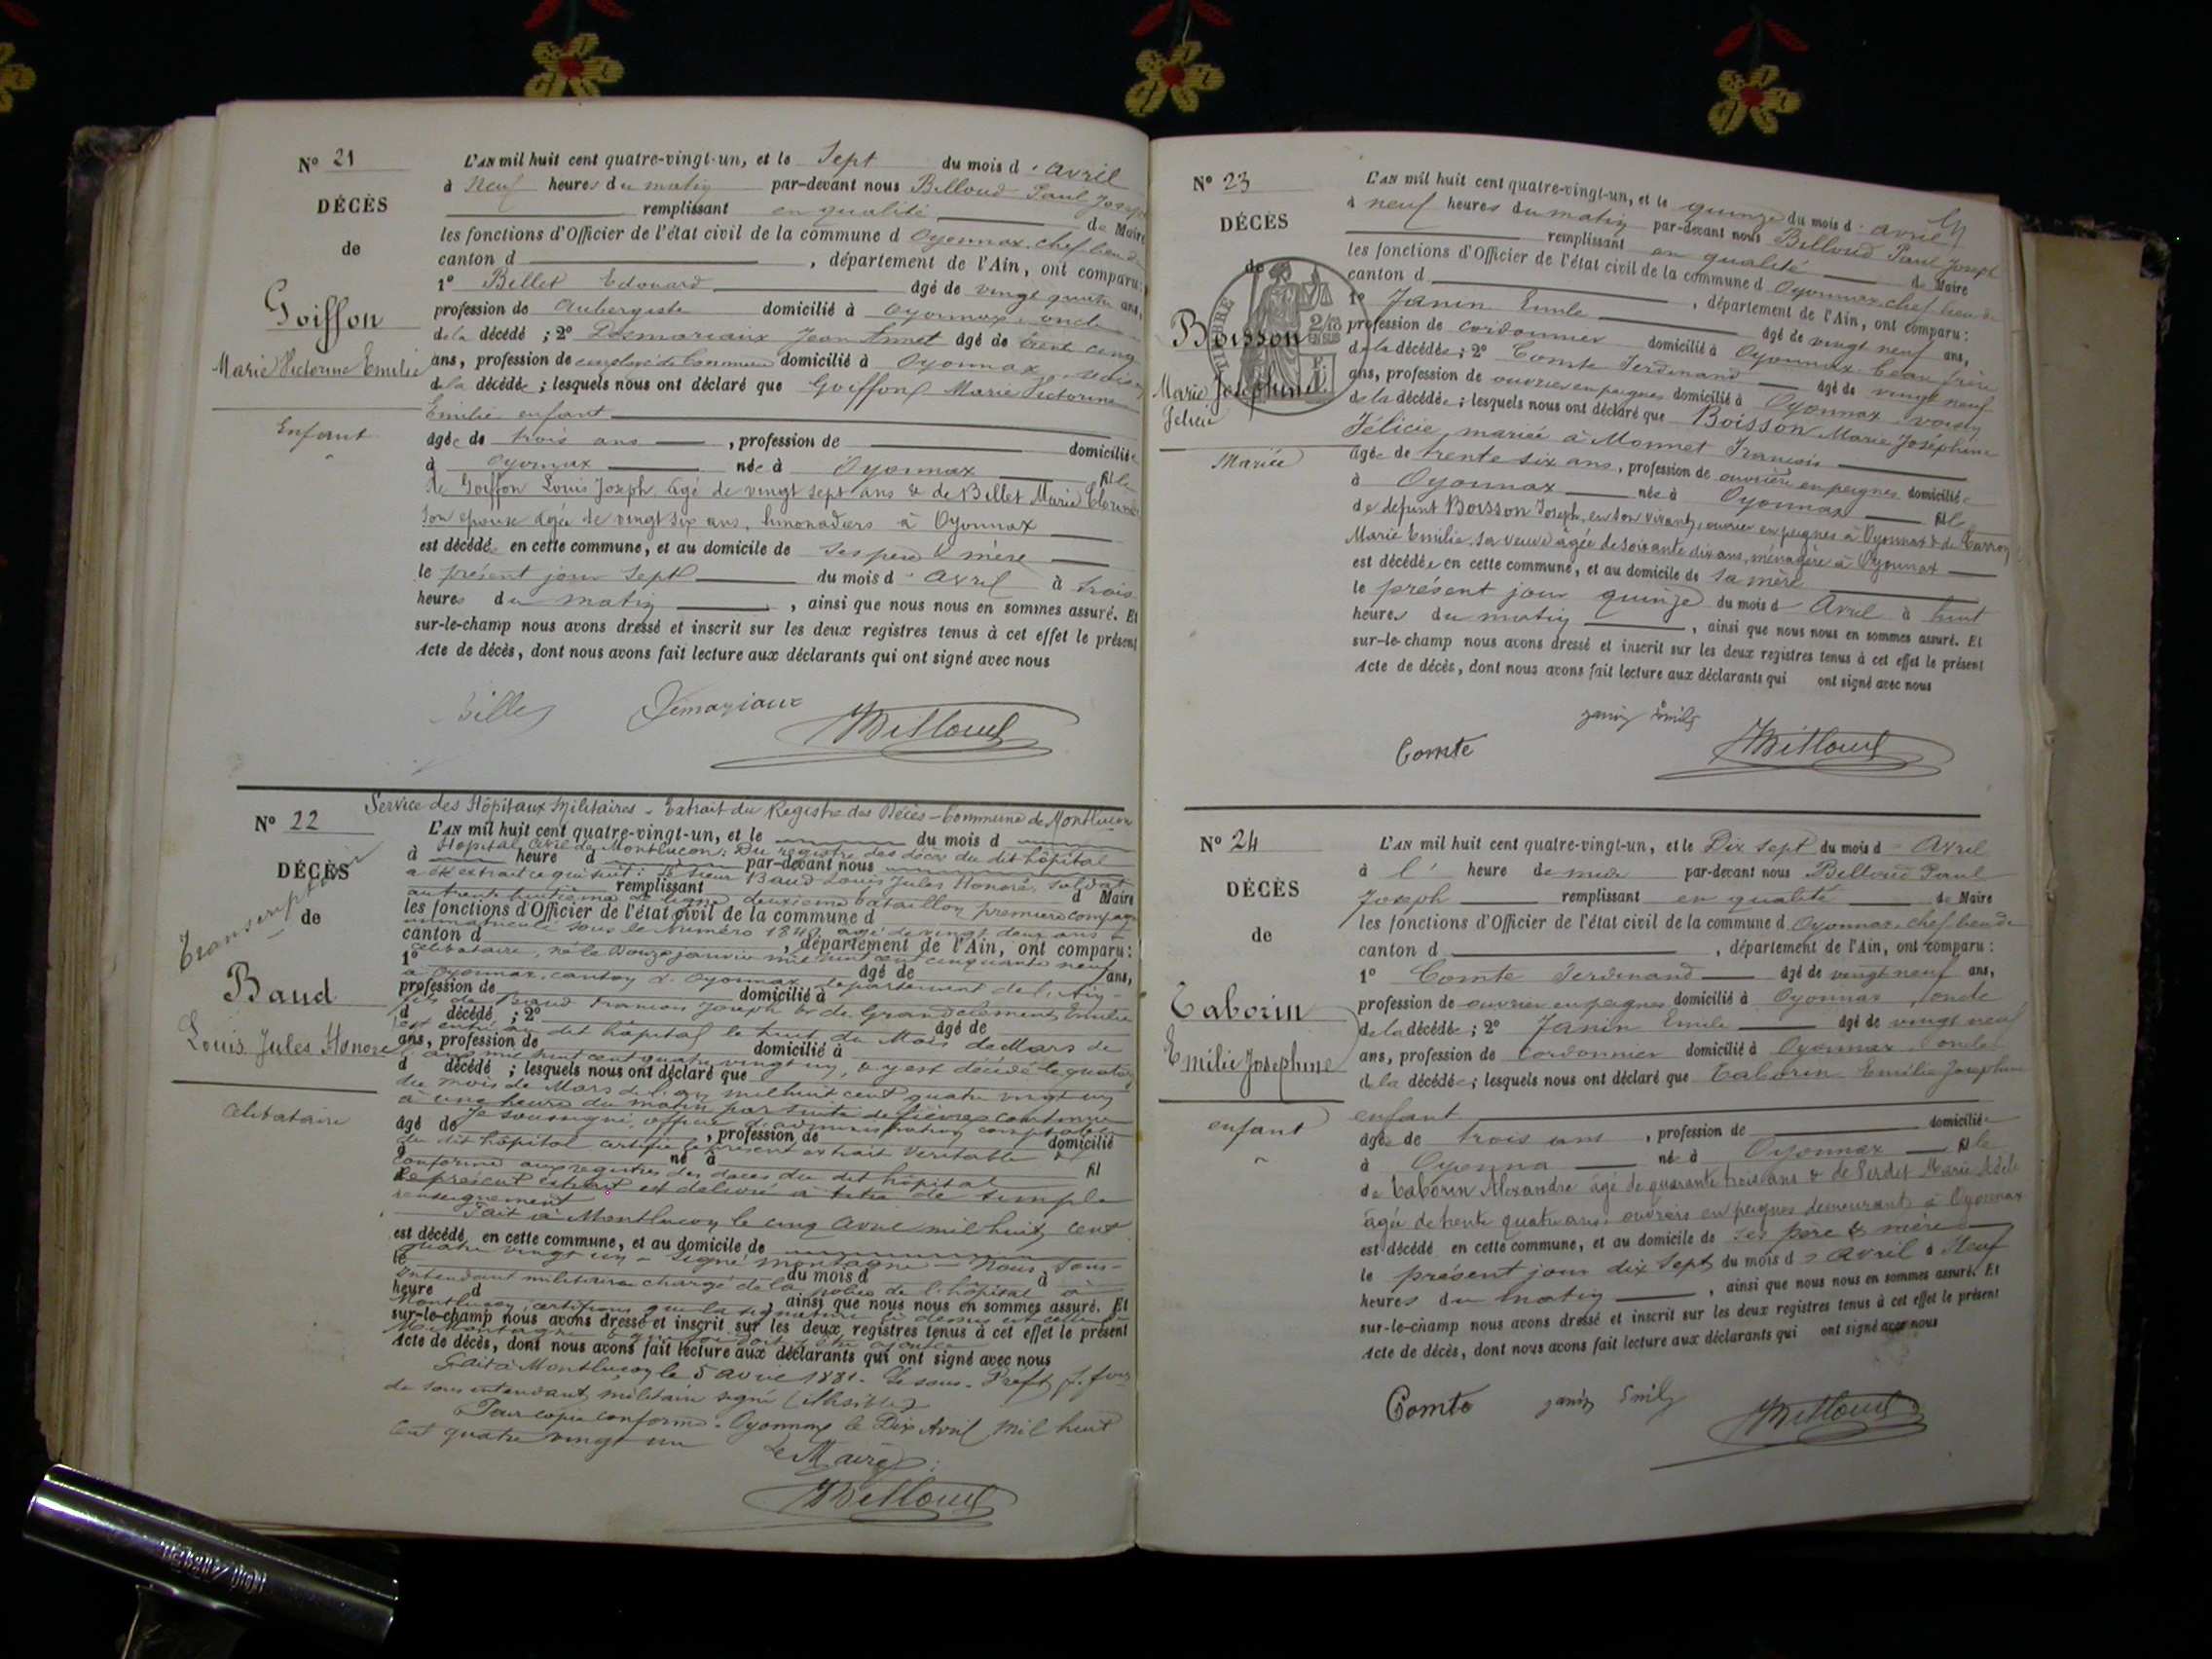 N° 21
DÉCÈS
de
Goiffon
Marie Victorine Emilie
Enfant
L'AN mil huit cent quatre-vingt-un, et le Sept du mois d'avril
à Neuf heures du matin par-devant nous Billoud Paul Joseph
remplissant en qualité de Maire
les fonctions d'Officier de l'état civil de la commune d'Oyonnax, chef lieu de
canton d , département de l'Ain, ont comparu:
1° Billet Edouard âgé de vingt quatre ans,
profession de Aubergiste domicilié à Oyonnax, oncle
de la décédé ; 2° Desmariaux Jean âgé de trente cinq
ans, profession de domicilié à Oyonnax, voisin
de la décédée ; lesquels nous ont déclaré que Goiffon Marie Victorine
Emilie enfant
âgée de trois ans , profession de domiciliée
à Oyonnax née à Oyonnax fille
de Goiffon Louis Joseph, âgé de vingt sept ans & de Billet Marie
son épouse âgée de vingt six ans, limonadiers à Oyonnax
est décédée en cette commune, et au domicile de ses père & mère
le présent jour Sept du mois d'Avril à trois
heures du matin , ainsi que nous nous en sommes assuré. Et
sur-le-champ nous avons dressé et inscrit sur les deux registres tenus à cet effet le présent
Acte de décès, dont nous avons fait lecture aux déclarants qui ont signé avec nous
Billet Démariaux Billoud
N° 22
DÉCÈS
de
Transcription
Baud
Louis Jules Honoré
célibataire
Service des Hôpitaux Militaires - Extrait du Registre des Décès - Commune de Montluçon
L'AN mil huit cent quatre-vingt-un, et le du mois d
Hôpital civil de Montluçon: Du registre des décès du dit hôpital
à heure d par-devant nous
a été extrait ce qui suit: Le sieur Baud Louis Jules Honoré, soldat
remplissant d Maire
au trente huitième de ligne deuxième bataillon première compagnie
les fonctions d'Officier de l'état civil de la commune d
immatriculé sous le Numéro 1840, âgé de vingt deux ans
canton d , département de l'Ain, ont comparu:
célibataire, né le Douze janvier mil huit cent cinquante neuf
1° âgé de ans,
à Oyonnax, canton d'Oyonnax, département de l'Ain
profession de domicilié à
fils de Baud François Joseph & de Grandclément Emilie
d décédé ; 2° âgé de
est entré au dit hôpital le huit du Mois de Mars de
ans, profession de domicilié à
l'an mil huit cent quatre vingt un, & y est décédé le quatorze
d décédé ; lesquels nous ont déclaré que
du mois de Mars de l'an mil huit cent quatre vingt un
à une heure du matin par suite de fièvre continue
Je soussigné, officier d'administration comptable
âgé de , profession de domicilié
du dit hôpital certifie le présent extrait véritable &
à né à fil
conforme aux registres des décès du dit hôpital
Le présent extrait est délivré à titre de simple
renseignement
Fait à Montluçon le cinq Avril mil huit cent
est décédé en cette commune, et au domicile de
quatre vingt un - signé Montagne - Nous, Sous-
le du mois d à
Intendant militaire chargé de la police de l'hôpital
heure d , ainsi que nous nous en sommes assuré. Et
Montluçon, certifions que la signature ci dessus est celle de
sur-le-champ nous avons dressé et inscrit sur les deux registres tenus à cet effet le présent
Mr Montagne être ajoutée
Acte de décès, dont nous avons fait lecture aux déclarants qui ont signé avec nous
Fait à Montluçon le 5 avril 1881. Le sous-Préft
de sous intendant militaire signé (illisible)
Pour copie conforme - Oyonnax le Dix Avril mil huit
cent quatre vingt un
Le Maire:
Billoud
N° 23
DÉCÈS
de
TIMBRE
Boisson
Marie Joséphine
Félicie
Mariée
L'AN mil huit cent quatre-vingt-un, et le quinze du mois d'avril
à neuf heures du matin par-devant nous Billoud Paul Joseph
remplissant en qualité de Maire
les fonctions d'Officier de l'état civil de la commune d'Oyonnax, chef lieu de
canton d , département de l'Ain, ont comparu:
1° Janin Emile âgé de vingt neuf ans,
profession de cordonnier domicilié à Oyonnax, beau frère
de la décédée ; 2° Comte Ferdinand âgé de vingt neuf
ans, profession de ouvrier en peignes domicilié à Oyonnax, voisin
de la décédée ; lesquels nous ont déclaré que Boisson Marie Joséphine
Félicie, mariée à Monnet François
âgée de trente six ans, profession de ouvrière en peignes domiciliée
à Oyonnax née à Oyonnax fille
de défunt Boisson Joseph, en son vivant, ouvrier en peignes à Oyonnax & de
Marie Emilie, sa veuve âgée de soixante dix ans, ménagère à Oyonnax
est décédée en cette commune, et au domicile de sa mère
le présent jour quinze du mois d'Avril à huit
heures du matin , ainsi que nous nous en sommes assuré. Et
sur-le-champ nous avons dressé et inscrit sur les deux registres tenus à cet effet le présent
Acte de décès, dont nous avons fait lecture aux déclarants qui ont signé avec nous
Comte Janin Emile Billoud
N° 24
DÉCÈS
de
Taborin
Emilie Joséphine
enfant
L'AN mil huit cent quatre-vingt-un, et le Dix sept du mois d'Avril
à l' heure de midi par-devant nous Billoud Paul
Joseph remplissant en qualité de Maire
les fonctions d'Officier de l'état civil de la commune d'Oyonnax, chef lieu de
canton d , département de l'Ain, ont comparu:
1° Comte Ferdinand âgé de vingt neuf ans,
profession de ouvrier en peignes domicilié à Oyonnax, oncle
de la décédée ; 2° Janin Emile âgé de vingt neuf
ans, profession de cordonnier domicilié à Oyonnax, oncle
de la décédée ; lesquels nous ont déclaré que Taborin Emilie Joséphine
enfant
âgée de trois ans , profession de domiciliée
à Oyonna née à Oyonnax fille
de Taborin Alexandre âgé de quarante trois ans & de Perdet Marie Adèle
âgée de trente quatre ans, ouvriers en peignes demeurant à Oyonnax
est décédé en cette commune, et au domicile de ses père & mère
le présent jour dix sept du mois d'avril à Neuf
heures du matin , ainsi que nous nous en sommes assuré. Et
sur-le-champ nous avons dressé et inscrit sur les deux registres tenus à cet effet le présent
Acte de décès, dont nous avons fait lecture aux déclarants qui ont signé avec nous
Comte Janin Emile Billoud